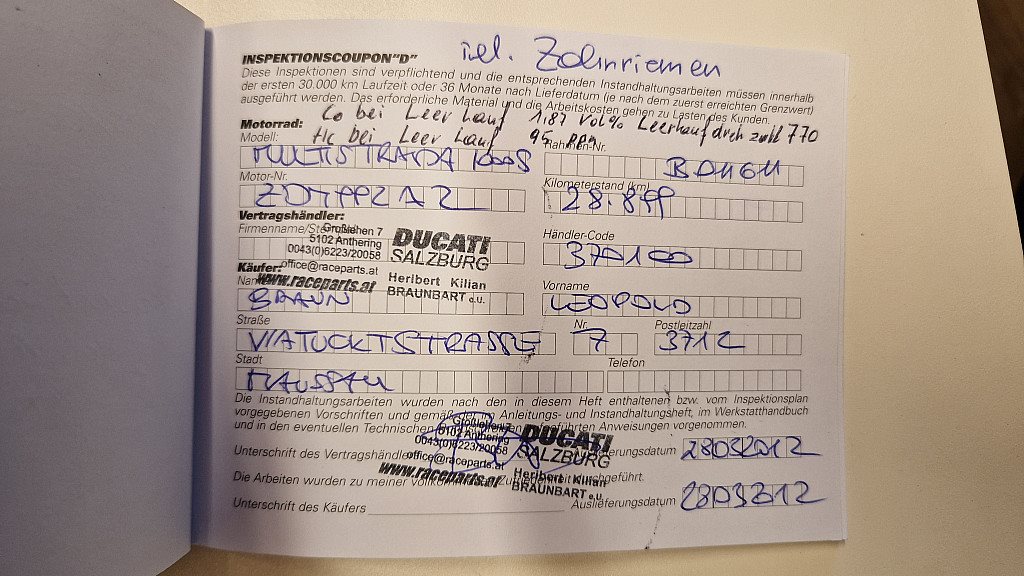 inkl. Zahnriemen
INSPEKTIONSCOUPON"D"
Diese Inspektionen sind verpflichtend und die entsprechenden Instandhaltungsarbeiten müssen innerhalb
der ersten 30.000 km Laufzeit oder 36 Monate nach Lieferdatum (je nach dem zuerst erreichten Grenzwert)
ausgeführt werden. Das erforderliche Material und die Arbeitskosten gehen zu Lasten des Kunden.
Co bei Leer Lauf 1.87 Vol% Leerlaufdrehzahl 770
Motorrad:
Hc bei Leer Lauf 95 ppm
Modell: Rahmen-Nr.
MULTISTRADA 1000S
Motor-Nr. Kilometerstand (km)
28.899
Vertragshändler:
Händler-Code
370100
Großlehen 7
5102 Anthering
0043(0)6223/20058
office@raceparts.at
www.raceparts.at
DUCATI
SALZBURG
Heribert Kilian
BRAUNBART e.U.
Käufer:
Vorname
BRAUN LEOPOLD
Straße Nr. Postleitzahl
7 3712
Stadt Telefon
Die Instandhaltungsarbeiten wurden nach den in diesem Heft enthaltenen bzw. vom Inspektionsplan
vorgegebenen Vorschriften und gemäß der im Anleitungs- und Instandhaltungsheft, im Werkstatthandbuch
und in den eventuellen Technischen aufgeführten Anweisungen vorgenommen.
Großlehen 7
5102 Anthering
0043(0)6223/20058
office@raceparts.at
www.raceparts.at
DUCATI
SALZBURG
Heribert Kilian
BRAUNBART e.U.
Unterschrift des Vertragshändlers Auslieferungsdatum 28032012
Die Arbeiten wurden zu meiner vollkommenen Zufriedenheit durchgeführt.
Unterschrift des Käufers Auslieferungsdatum 28032012